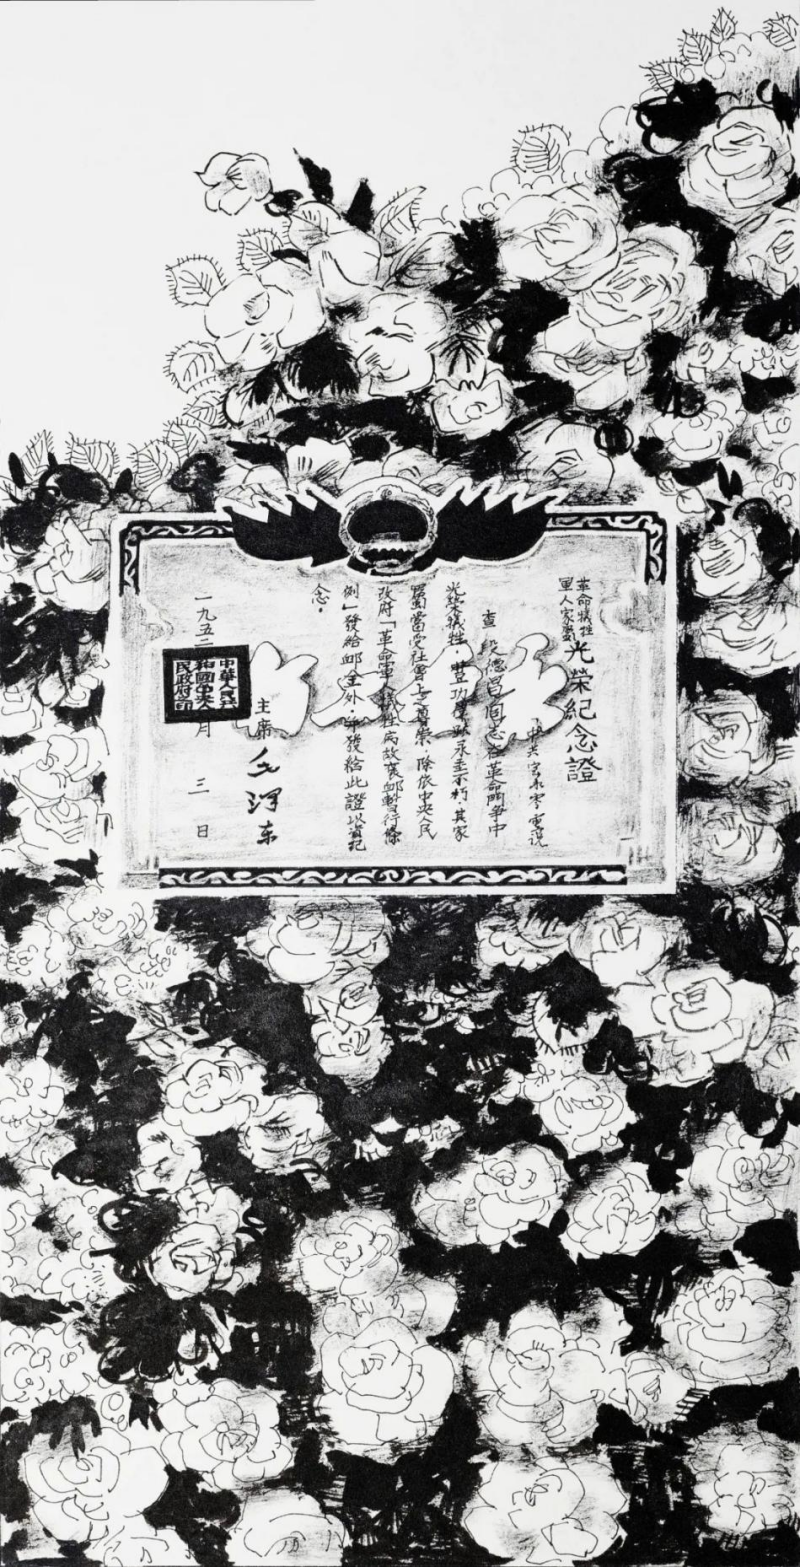 革命犧牲
軍人家屬
光榮紀念證
查段德昌同志在革命鬥爭中
光榮犧牲，豐功偉績永垂不朽，其家
屬當受社會上之尊崇。除依中央人民
政府「革命軍人犧牲病故褒卹暫行條
例」發給卹金外，並發給此證以資紀
念。
主席 毛泽东
一九五二 月 三 日
中華人民共
和國中央人
民政府印